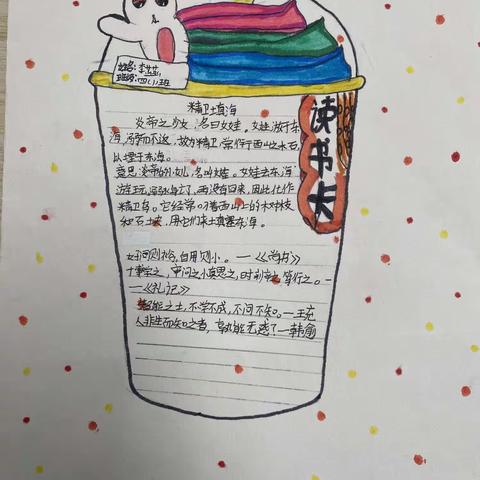 姓名:李
班级:四(1)班
读书卡
精卫填海
炎帝之少女,名曰女娃。女娃游于东
海,溺而不返,故为精卫,常衔西山之木石,
以堙于东海。
意思:炎帝的小女儿,名叫女娃。女娃去东海
游玩,溺水身亡了,再没有回来,因此化作
精卫鸟。它经常叼着西山上的树枝
和石块,用它们来填塞东海。
好问则裕,自用则小。——《尚书》
博学之,审问之,慎思之,明辨之,笃行之。—
—《礼记》
智能之士,不学不成,不问不知。—王充
人非生而知之者,孰能无惑?—韩愈